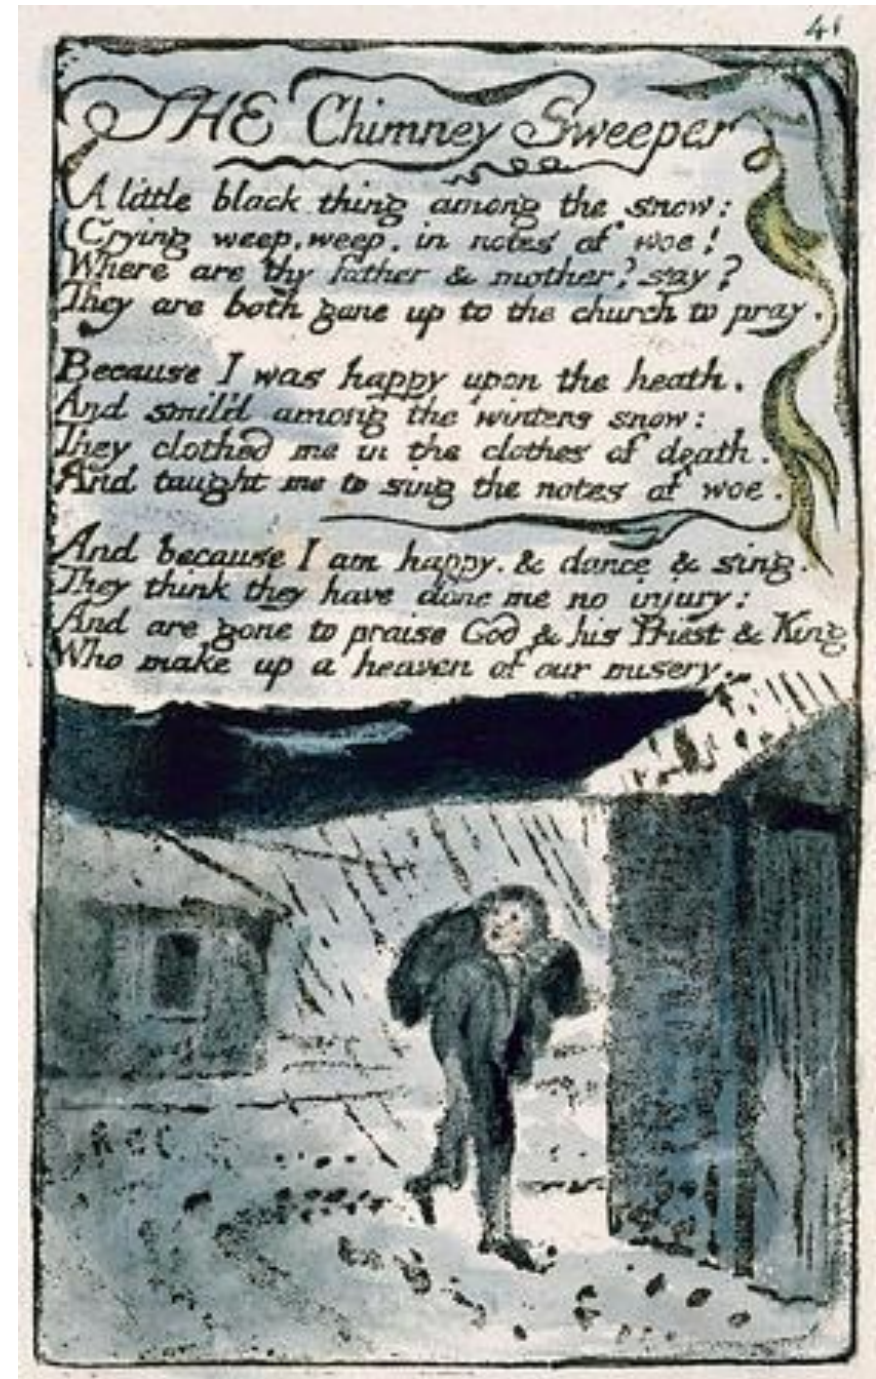 41
THE Chimney Sweeper
A little black thing among the snow:
Crying weep, weep. in notes of woe!
Where are thy father & mother? say?
They are both gone up to the church to pray.
Because I was happy upon the heath.
And smil'd among the winters snow:
They clothed me in the clothes of death.
And taught me to sing the notes of woe.
And because I am happy. & dance & sing.
They think they have done me no injury:
And are gone to praise God & his Priest & King
Who make up a heaven of our misery.